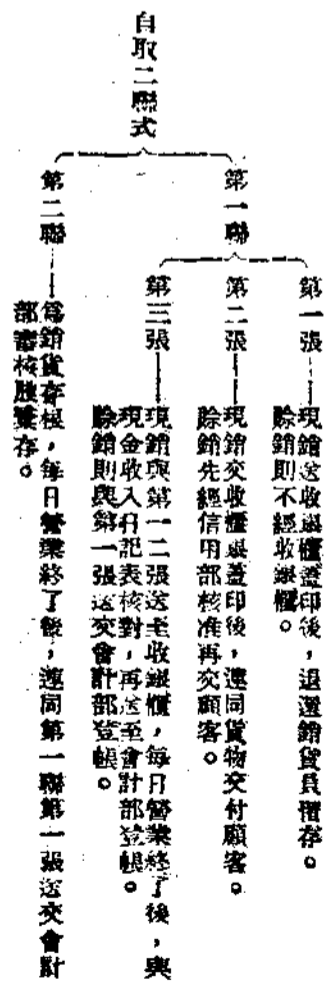 自取二聯式
第一聯
第一張——現銷送收銀櫃蓋印後，退還銷貨員留存。
賒銷則不經收銀櫃。
第二張——現銷交收櫃銀蓋印後，連同貨物交付顧客。
賒銷先經信用部核准再交顧客。
第三張——現銷與第一二張送至收銀櫃，每日營業終了後，與
現金收入日記表核對，再送至會計部登帳。
賒銷則與第一張送交會計部登帳。
第二聯——爲銷貨存根，每日營業終了後，連同第一聯第一張送交會計
部審核彙存。